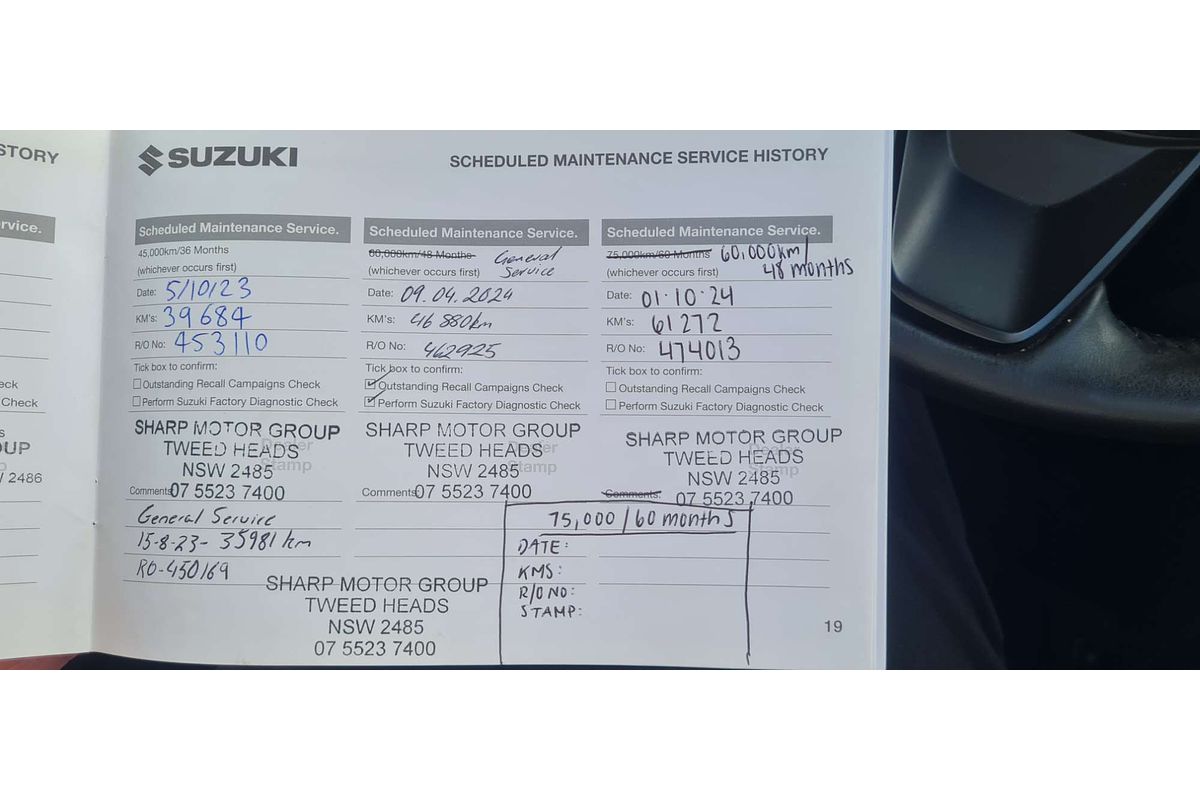 STORY
SUZUKI
SCHEDULED MAINTENANCE SERVICE HISTORY
rvice.
eck
Check
s
OUP
2486
Scheduled Maintenance Service.
45,000km/36 Months
(whichever occurs first)
Date: 5/10/23
KM's: 39684
R/O No: 453110
Tick box to confirm:
Outstanding Recall Campaigns Check
Perform Suzuki Factory Diagnostic Check
SHARP MOTOR GROUP
TWEED HEADS
NSW 2485
Dealer Stamp
Comments: 07 5523 7400
General Service
15-8-23- 35981 km
RO-450169
SHARP MOTOR GROUP
TWEED HEADS
NSW 2485
07 5523 7400
Scheduled Maintenance Service.
60,000km/48 Months General
(whichever occurs first) Service
Date: 09.04.2024
KM's: 46 880km
R/O No: 462925
Tick box to confirm:
Outstanding Recall Campaigns Check
Perform Suzuki Factory Diagnostic Check
SHARP MOTOR GROUP
TWEED HEADS
NSW 2485
Dealer Stamp
Comments: 07 5523 7400
Scheduled Maintenance Service.
75,000km/60 Months 60,000km/
(whichever occurs first) 48 months
Date: 01.10.24
KM's: 61272
R/O No: 474013
Tick box to confirm:
Outstanding Recall Campaigns Check
Perform Suzuki Factory Diagnostic Check
SHARP MOTOR GROUP
TWEED HEADS
NSW 2485
Dealer Stamp
Comments: 07 5523 7400
75,000/60 months
DATE:
KMS:
R/O NO:
STAMP:
19